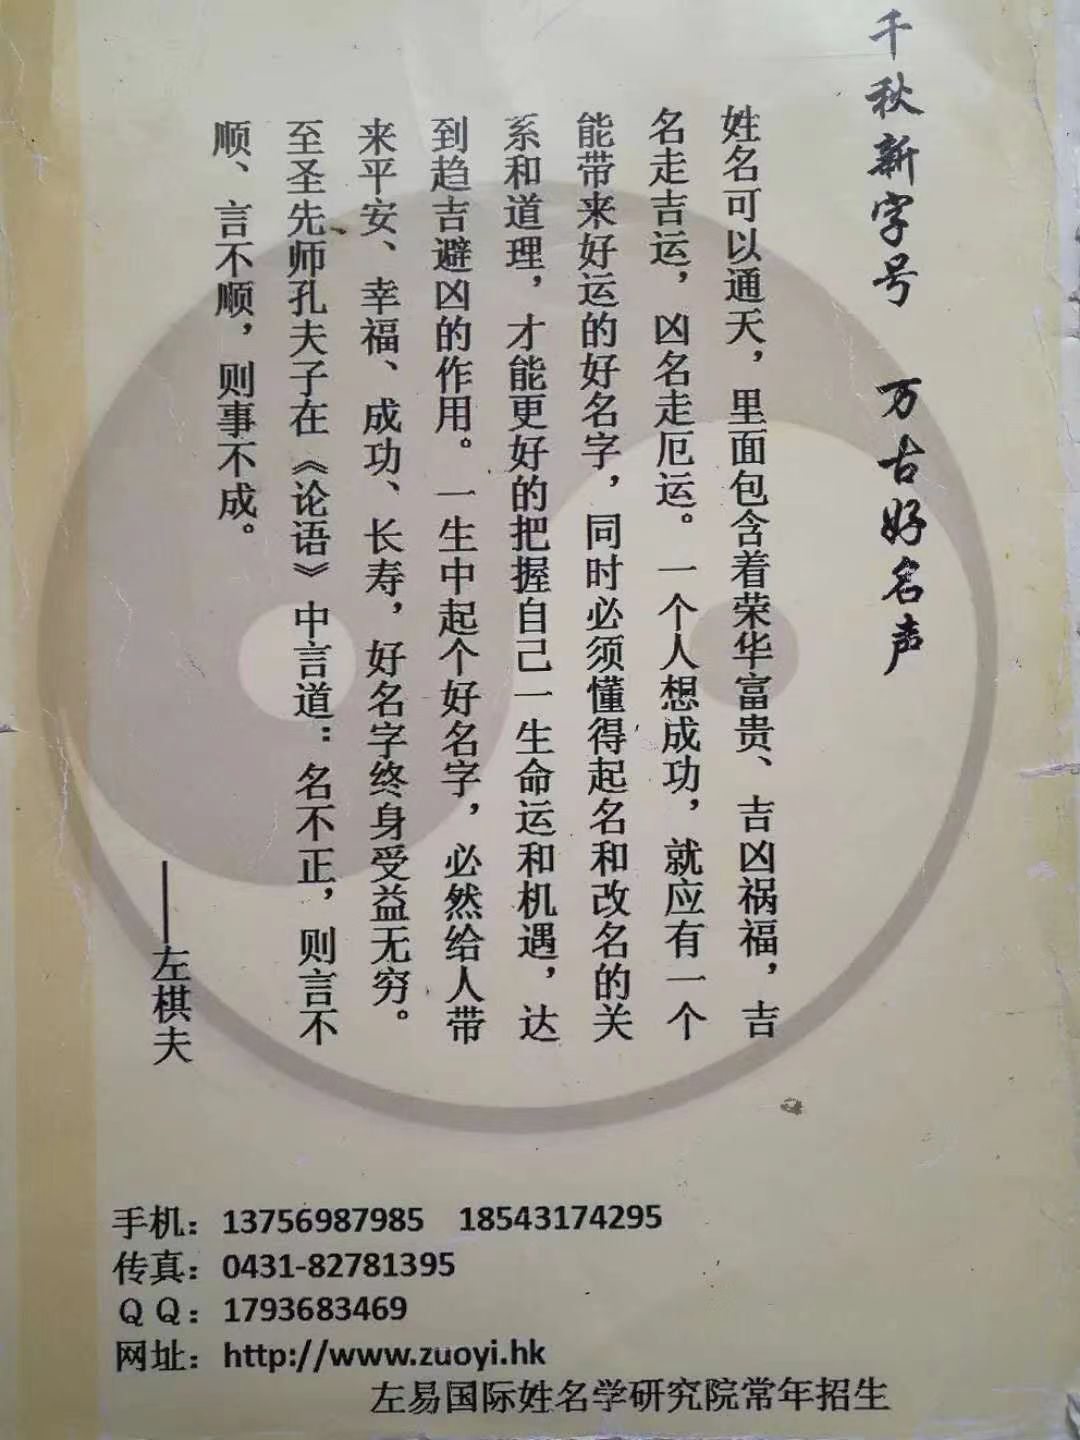 千秋新字号 万古好名声
姓名可以通天，里面包含着荣华富贵、吉凶祸福，吉
名走吉运，凶名走厄运。一个人想成功，就应有一个
能带来好运的好名字，同时必须懂得起名和改名的关
系和道理，才能更好的把握自己一生命运和机遇，达
到趋吉避凶的作用。一生中起个好名字，必然给人带
来平安、幸福、成功、长寿，好名字终身受益无穷。
至圣先师孔夫子在《论语》中言道：名不正，则言不
顺、言不顺，则事不成。
——左棋夫
手机：13756987985 18543174295
传真：0431-82781395
ＱＱ：1793683469
网址：http://www.zuoyi.hk
左易国际姓名学研究院常年招生